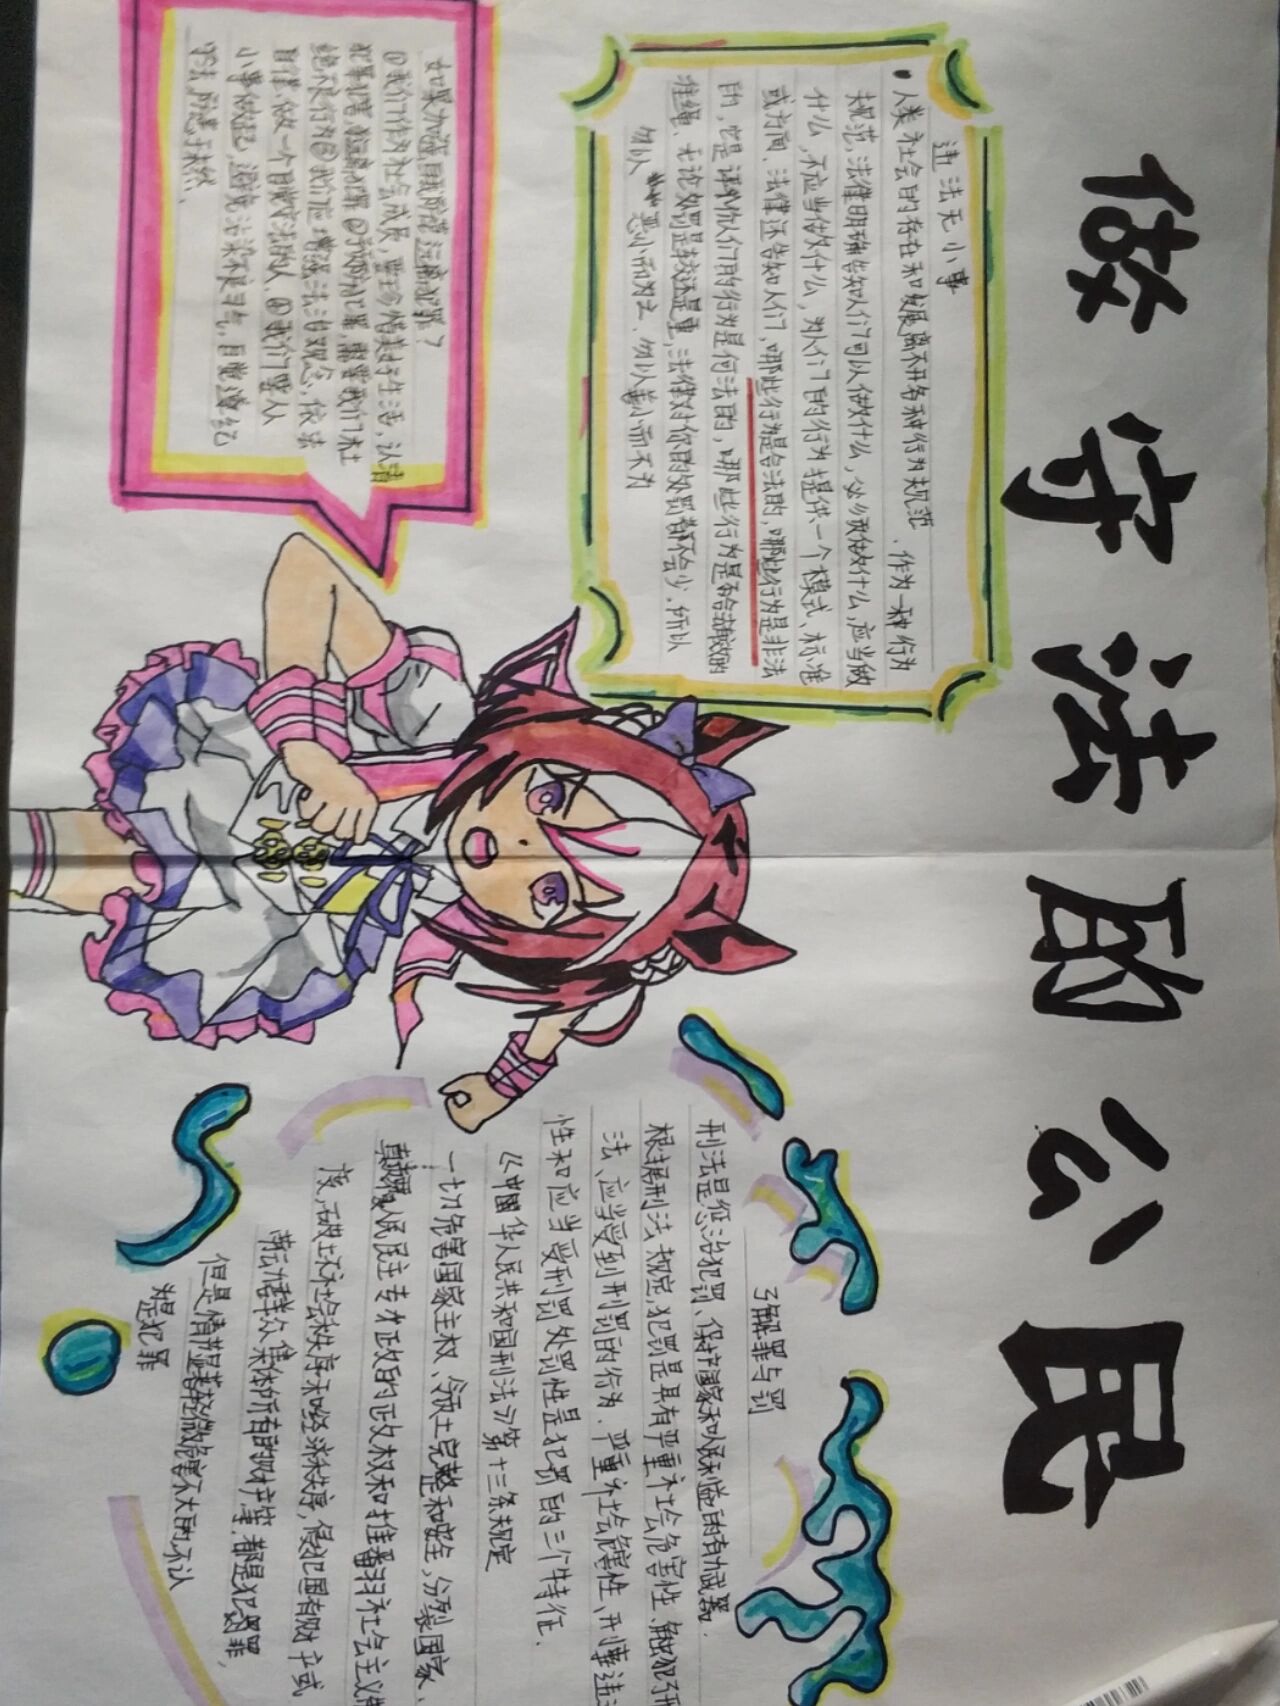 做守法的公民
违法无小事
人类社会的存在和发展离不开各种行为规范、作为一种行为
规范法律明确告知人们可以做什么,必须做什么,应当做
什么,不应当做什么,为人们的行为提供一个模式、标准
或方向、法律还告知人们,哪些行为是合法的,哪些行为是非法
的,它是评价人们的行为是何法的,哪些行为是否合法有效的
准绳、无论处罚是轻还是重,法律对你的处罚都不会少.所以
勿以恶小而为之.勿以善小而不为
如果加强自我防范远离犯罪?
①我们作为社会成员,要珍惜美好生活,认清
犯罪危害 远离犯罪 ②预防犯罪,需要我们杜
绝不良行为③我们应增强法治观念,依法
自律、做一个自觉守法的人 ④我们要从
小事做起,避免沾染不良习气,自觉遵纪
守法,防患于未然、
了解罪与罚
刑法是惩治犯罪、保护国家和人民利益的有力武器.
根据刑法规定,犯罪是具有严重社会危害性、触犯刑
法、应当受到刑罚的行为.严重社会危害性、刑事违法
性和应当受刑罚处罚性是犯罪的三个特征.
《中国华人民共和国刑法》第十三条规定
一切危害国家主权、领土完整和安全,分裂国家、
颠覆人民民主专政的政权和推翻社会主义制
度,破坏社会秩序和经济秩序,侵犯国有财产或
劳动群众集体所有的财产等,都是犯罪,
但是情节显著轻微危害不大的不认
为是犯罪